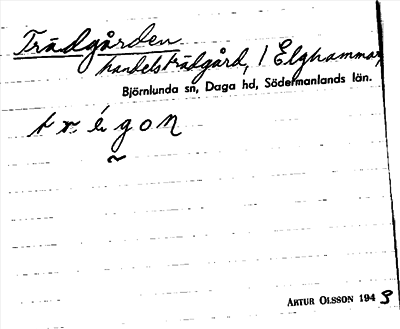 Trädgården
handelsträdgård, / Elghammar,
Björnlunda sn, Daga hd, Södermanlands län.
ARTUR OLSSON 1943